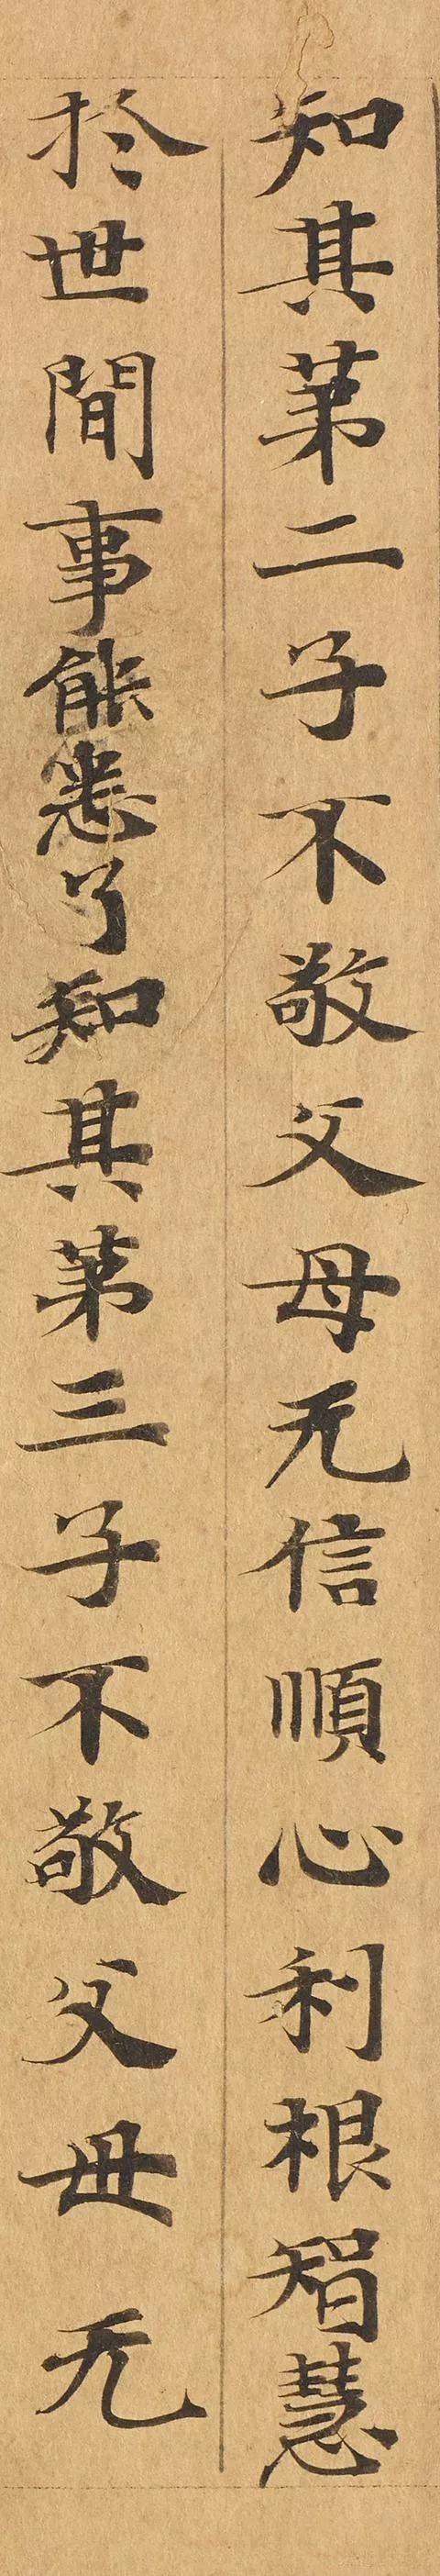 知其苐二子不敬父母无信順心利根智慧
於世間事能悉了知其苐三子不敬父毋无